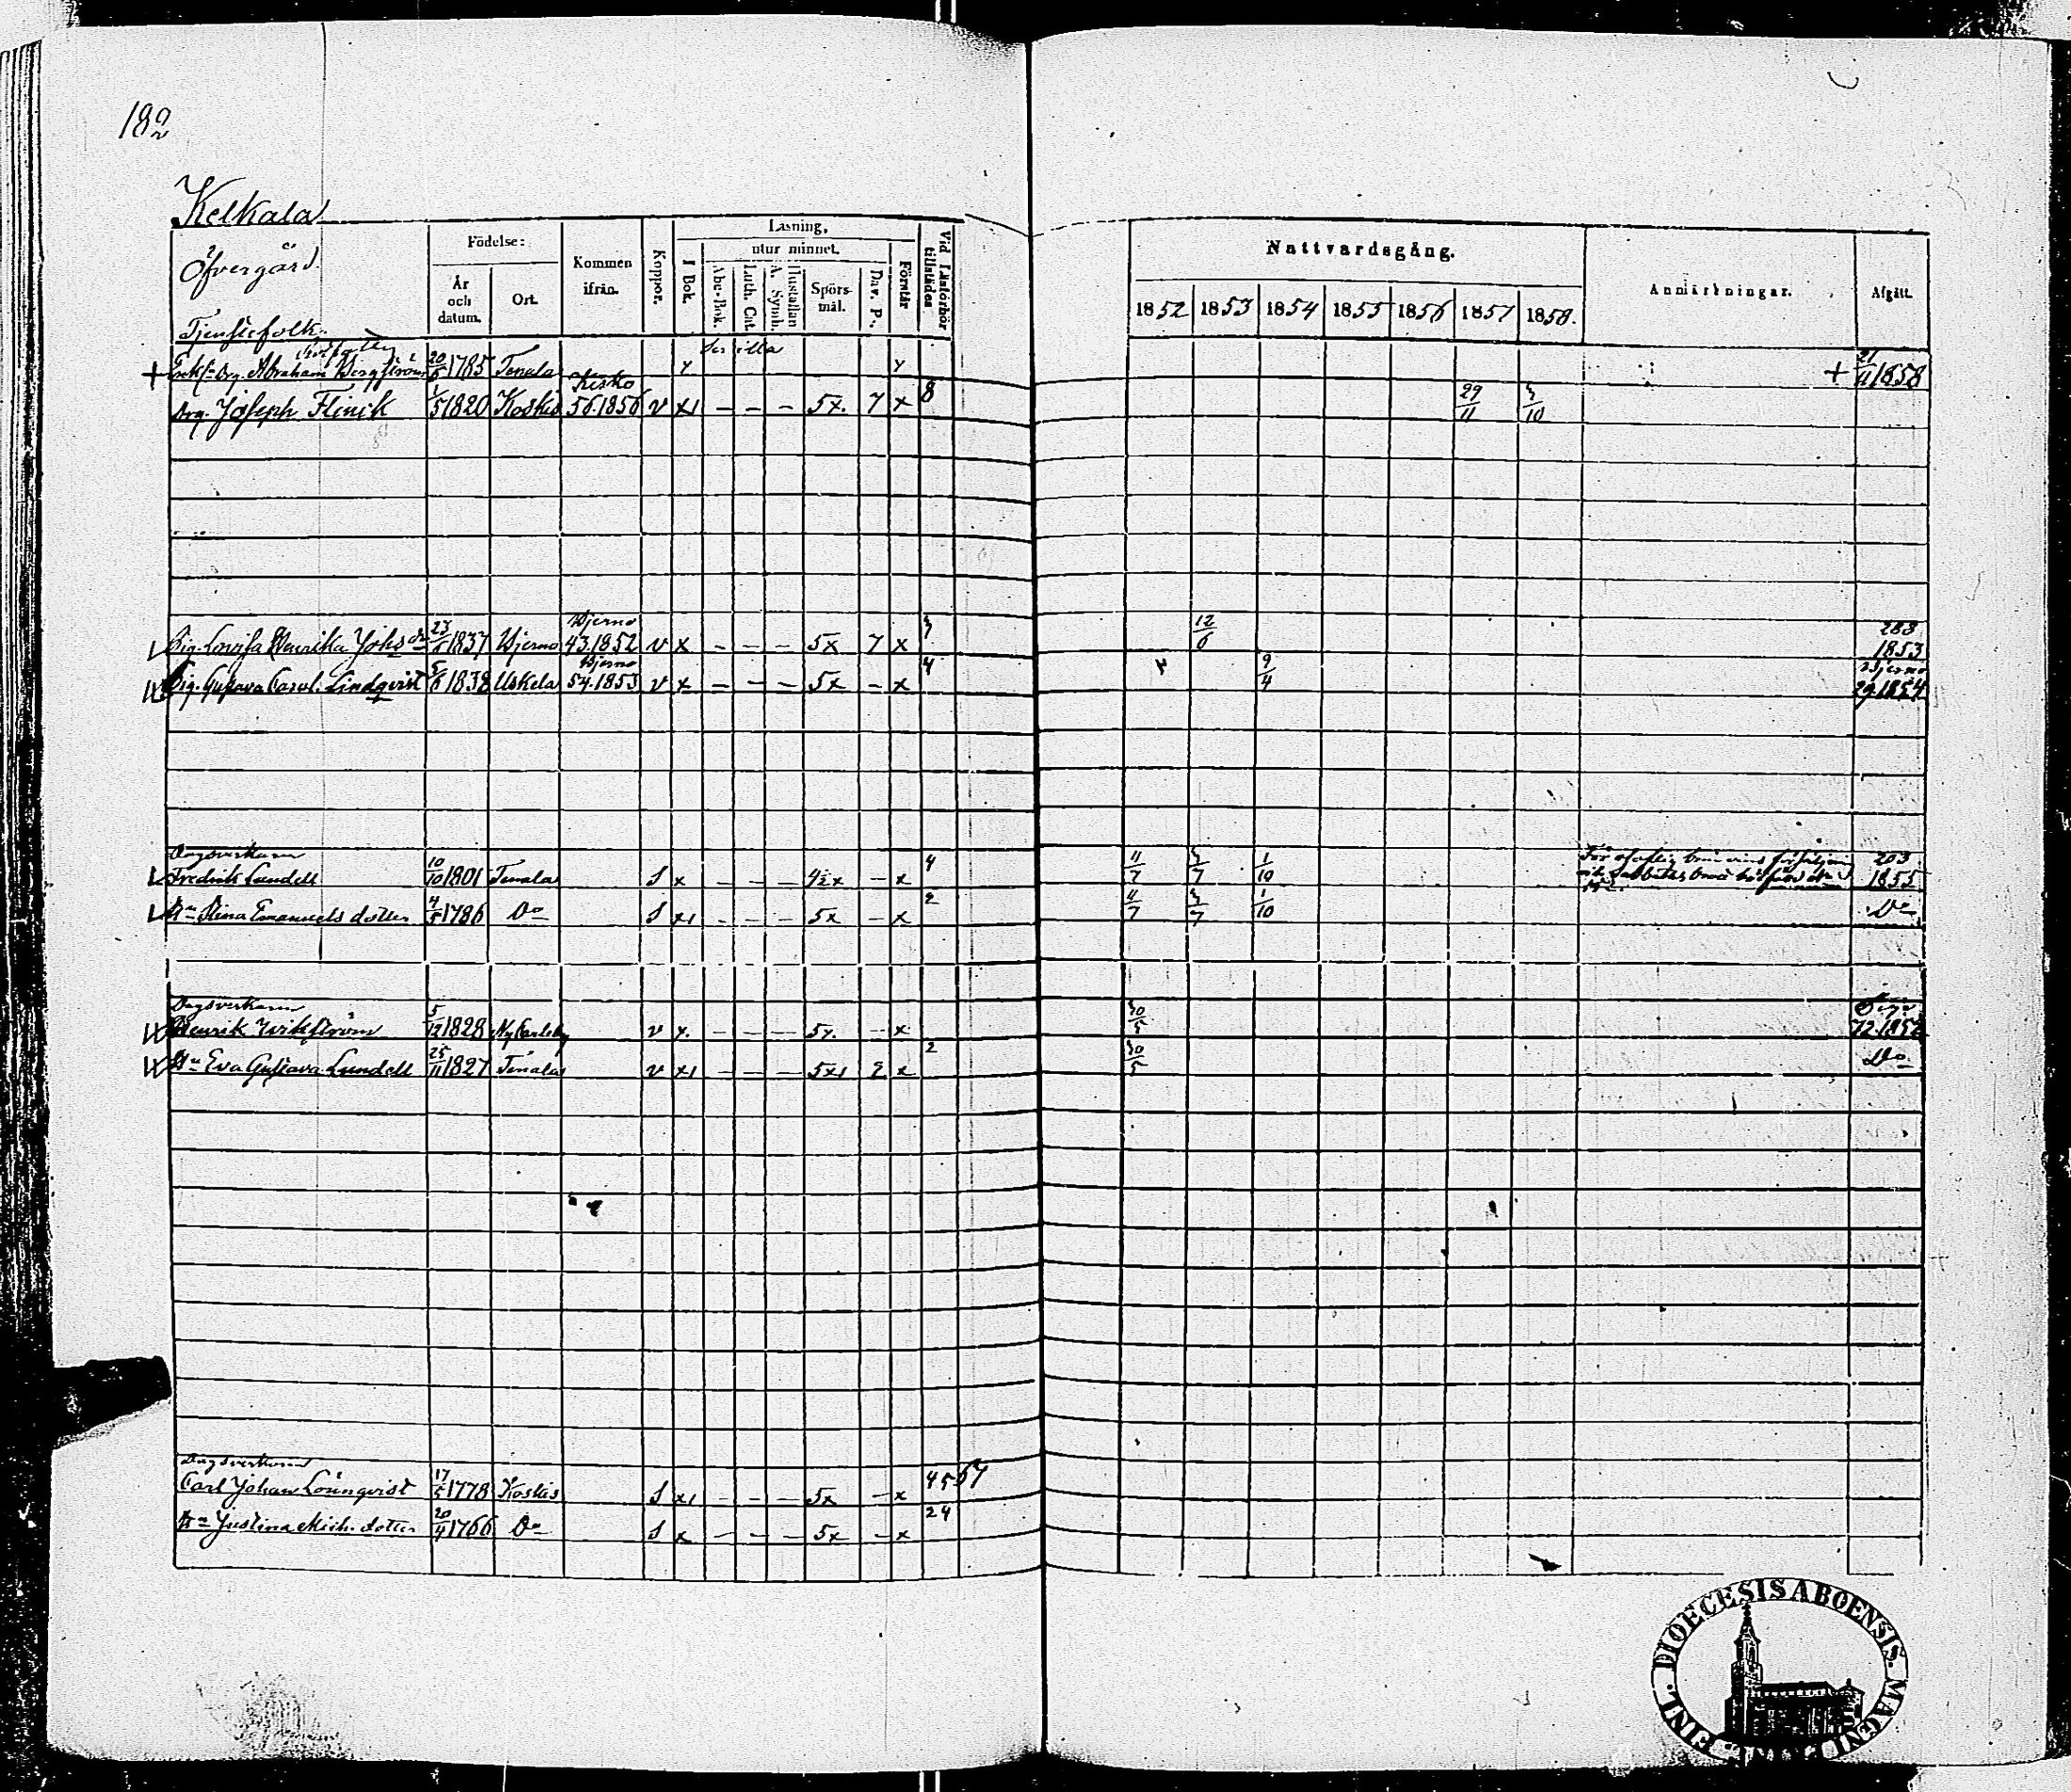 182
Kelkala
Öfvergård.
Tjenstefolk.
Födelse:
År och datum.
Ort.
Kommen ifrån.
Koppor.
Läsning,
I Bok.
utur minnet.
Abc-Bok.
Luth. Cat.
A. Symb.
Hustaflan
Spörs-mål.
Dav. Ps.
Förstår
Vid Läsförhör tillstädes
Nattvardsgång.
1852 1853 1854 1855 1856 1857 1858.
Anmärkningar.
Afgått.
+ Drg. Abraham Bergström 20/5 1785 Tenala + 21/11 1858
Drg. Joseph Flinik 1/5 1820 Koskis Kisko 56.1856 v x1 – – – 5x. 7 x 8 29/11 3/10
Pig. Lovisa Henrika Johsdr 1837 Bjerno Bjerno 43.1852 v x – – – 5x 7 x 3 12/6 1853
Pig. Gustava Carol. Lindqvist 5/6 1838 Uskela Bjerno 54.1853 v x – – – 5x – x 4 9/4 Bjerno 29.1854
Dagsverkaren
Fredrik Lundell 10/10 1801 Tenala S x – – – 4½x – x 4 11/7 3/7 1/10 203 1855
Hu Stina Emanuels dotter 4/5 1786 Do S x1 – – – 5x – x 2 11/7 3/7 1/10 Do
Dagsverkaren
Henrik Wikström 5/12 1828 Ny Carleby v x. – – – 5x. – x 30/5 72.1852
Hu Eva Gustava Lundell 25/11 1827 Tenala v x1 – – – 5x1 2 x 2 30/5 Do
Dagsverkaren
Carl Johan Lönnqvist 17/5 1778 Koskis S x1 – – – 5x – x 4567
Hu Justina Mich. dotter 20/4 1766 Do S x – – – 5x – x 24
DIOECESIS ABOENSIS. MAGNI DUC. FINL.